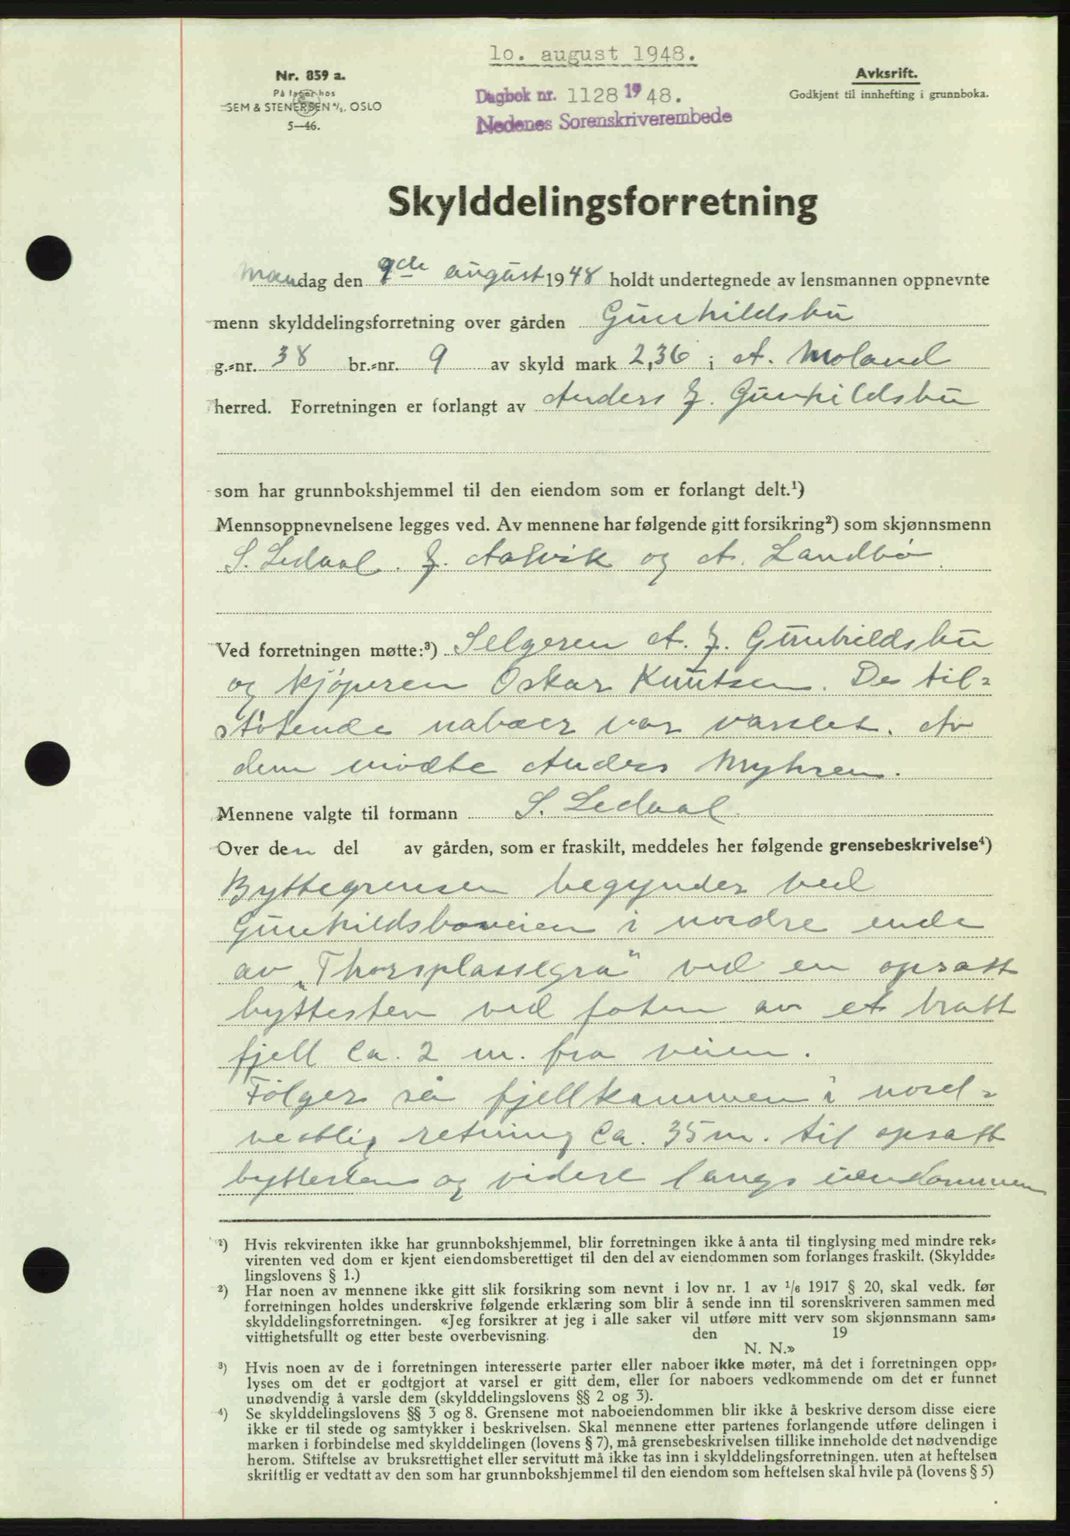 10. august 1948.
Nr. 859 a.
På lager hos
SEM & STENERSEN A/S, OSLO
5—46.
Dagbok nr. 1128 19 48.
Nedenes Sorenskriverembede
Avksrift.
Godkjent til innhefting i grunnboka.
Skylddelingsforretning
Mandag den 9de august 1948 holdt undertegnede av lensmannen oppnevnte
menn skylddelingsforretning over gården Gunhildsbu
g.-nr. 38 br.-nr. 9 av skyld mark 2,36 i A. Moland
herred. Forretningen er forlangt av Anders J. Gunhildsbu
som har grunnbokshjemmel til den eiendom som er forlangt delt.¹)
Mennsoppnevnelsene legges ved. Av mennene har følgende gitt forsikring²) som skjønnsmenn
S. Ledaal. J. Aalvik og A. Landbø.
Ved forretningen møtte:³) Selgeren A. J. Gunhildsbu
og kjøperen Oskar Knutsen. De til-
støtende naboer var varslet. Av
dem mødte Anders Myhren.
Mennene valgte til formann S. Ledaal.
Over den del av gården, som er fraskilt, meddeles her følgende grensebeskrivelse⁴)
Byttegrensen begynder ved
Gunhildsboveien i nordre ende
av "Thorsplassegra" ved en opsatt
byttesten ved foten av et bratt
fjell ca. 2 m. fra veien.
Følger så fjellkammen i nord-
vestlig retning ca. 35 m. til opsatt
byttesten og videre langs kammen
¹) Hvis rekvirenten ikke har grunnbokshjemmel, blir forretningen ikke å anta til tinglysing med mindre rek-
virenten ved dom er kjent eiendomsberettiget til den del av eiendommen som forlanges fraskilt. (Skyldde-
lingslovens § 1.)
²) Har noen av mennene ikke gitt slik forsikring som nevnt i lov nr. 1 av 1/6 1917 § 20, skal vedk. før
forretningen holdes underskrive følgende erklæring som blir å sende inn til sorenskriveren sammen med
skylddelingsforretningen. «Jeg forsikrer at jeg i alle saker vil utføre mitt verv som skjønnsmann sam-
vittighetsfullt og etter beste overbevisning. den 19
N. N.»
³) Hvis noen av de i forretningen interesserte parter eller naboer ikke møter, må det i forretningen opp-
lyses om det er godtgjort at varsel er gitt dem, eller for naboers vedkommende om det er funnet
unødvendig å varsle dem (skylddelingslovens §§ 2 og 3).
⁴) Se skylddelingslovens §§ 3 og 8. Grensene mot naboeiendommen blir ikke å beskrive dersom disse eiere
ikke er til stede og samtykker i beskrivelsen. Skal mennene etter partenes forlangende utføre delingen i
marken i forbindelse med skylddelingen (lovens § 7), må grensebeskrivelsen tillike inneholde det nødvendige
herom. Stiftelse av bruksrettighet eller servitutt må ikke tas inn i skylddelingsforretningen. uten at heftelsen
skriftlig er vedtatt av den som har grunnbokshjemmel til den eiendom som heftelsen skal hvile på (lovens § 5)